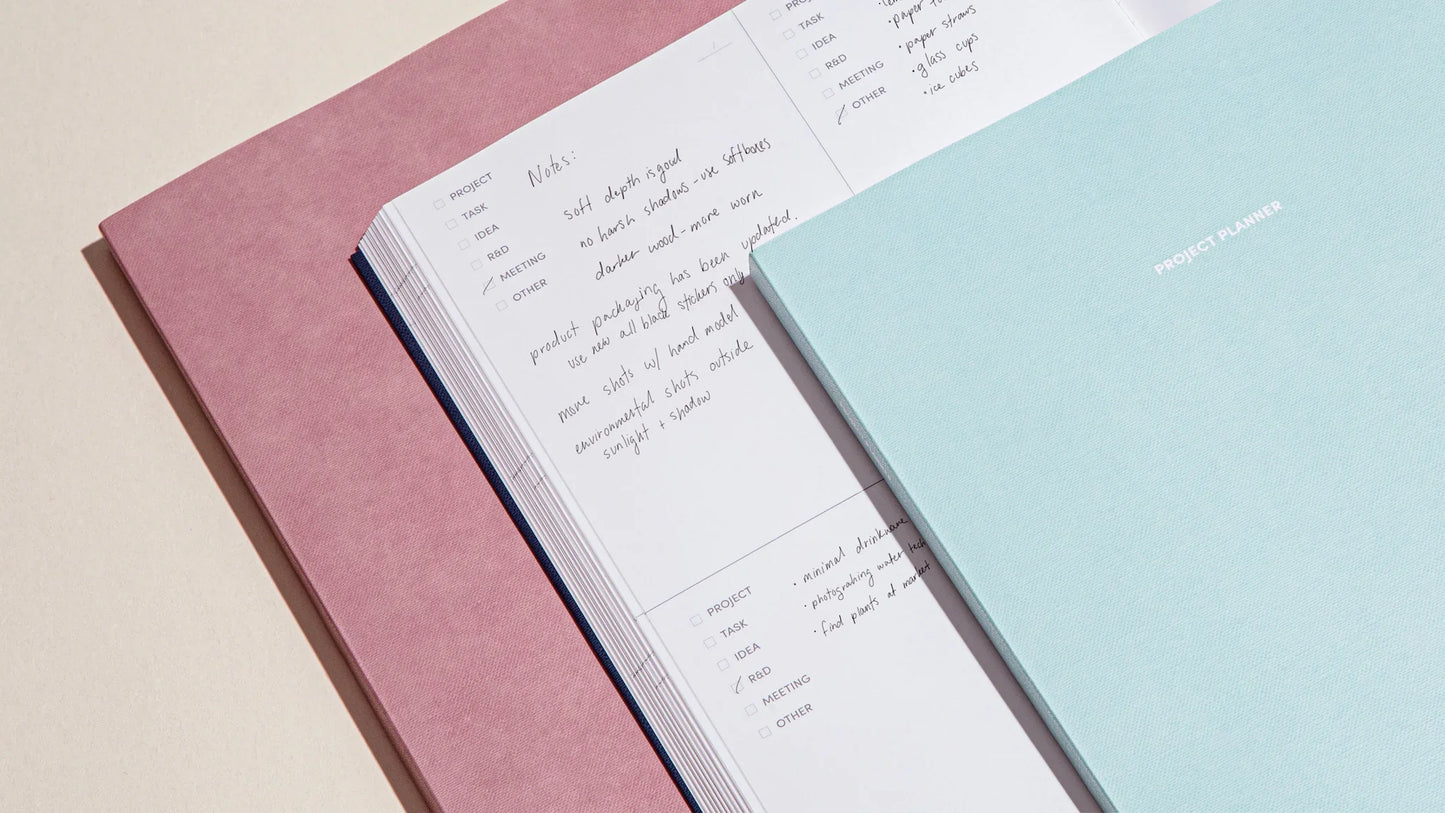 PROJECT
TASK
IDEA
R&D
MEETING
OTHER
Notes:
soft depth is good
no harsh shadows - use softboxes
darker wood - more worn
product packaging has been updated.
use new all black stickers only
more shots w/ hand model
environmental shots outside
sunlight + shadow
TASK
IDEA
R&D
MEETING
OTHER
• paper
• paper straws
• glass cups
• ice cubes
PROJECT
TASK
IDEA
R&D
MEETING
OTHER
• minimal drinkware
• photograhing water
• find plants at market
PROJECT PLANNER